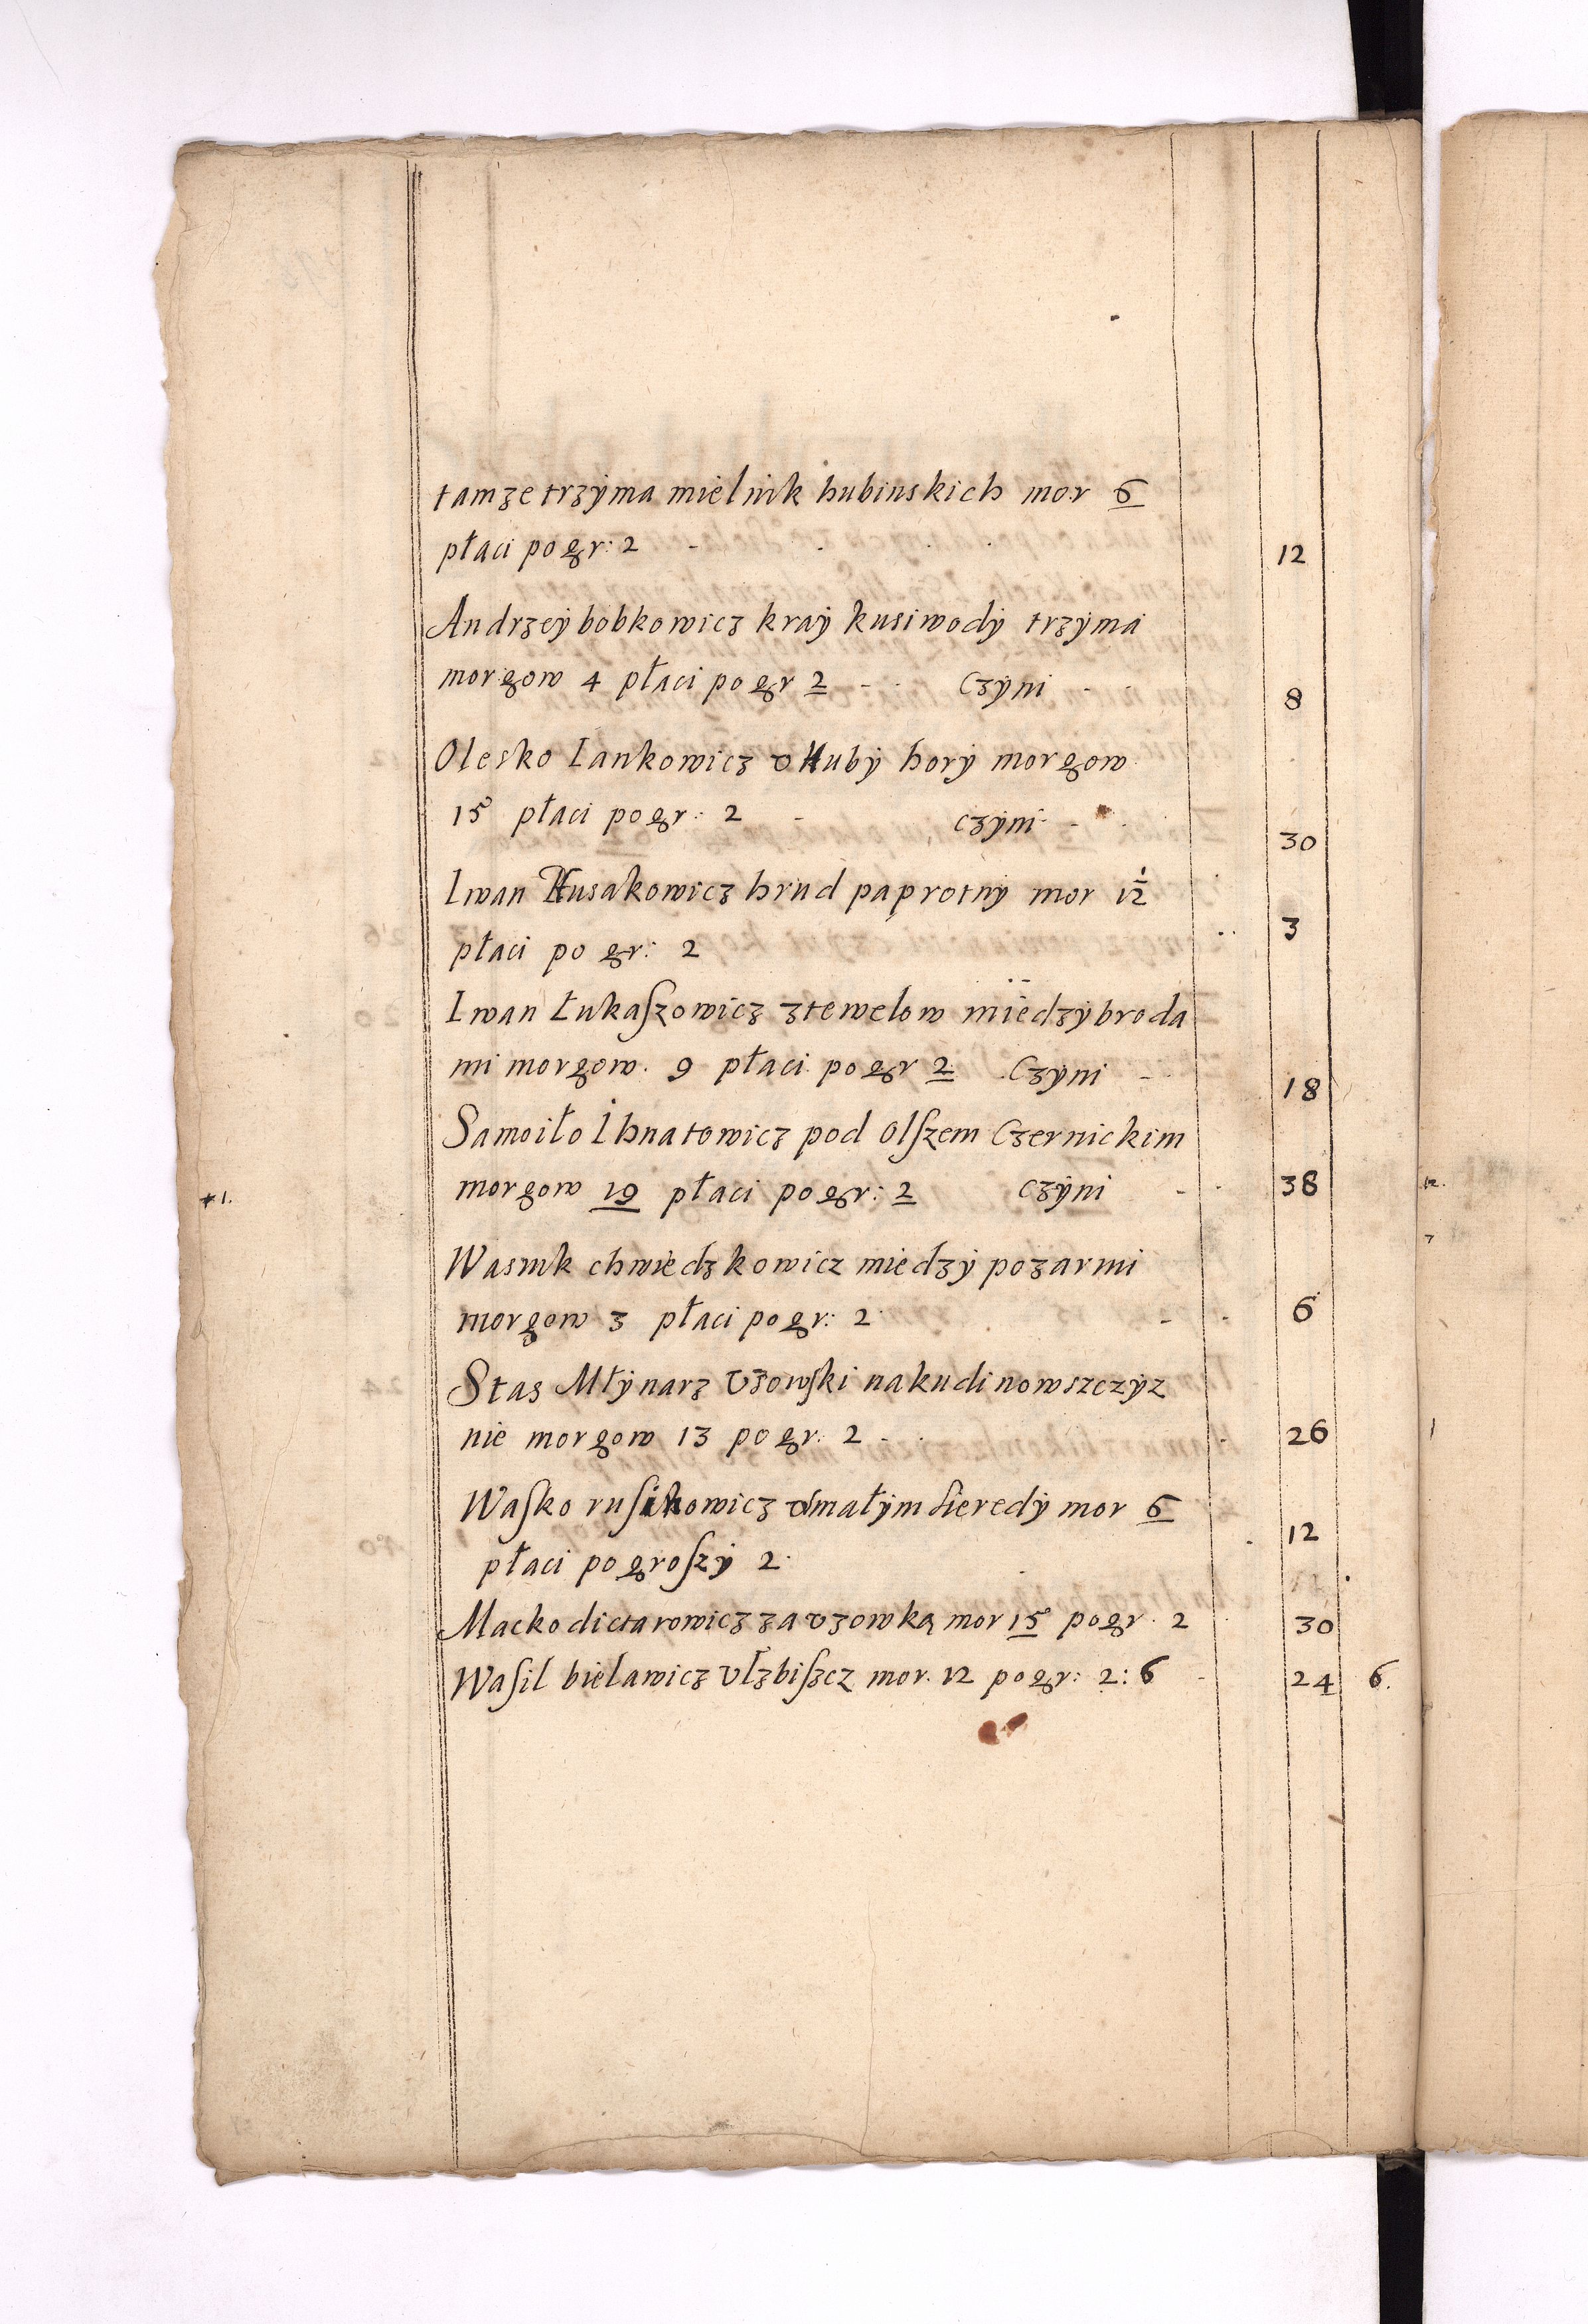 tamze trzÿma mielnik hubinskich mor 6
płaci po gr: 2 12
Andrzeÿ bobkowicz kraÿ kusiwodÿ trzÿma
morgow 4 płaci po gr 2 czÿni 8
Olesko Iankowicz v Hubÿ horÿ morgow
15 płaci po gr: 2 czÿni 30
Iwan Husakowicz hrud paprotnÿ mor 1½
płaci po gr: 2 3
Iwan Łukaſzowicz z tewelow miedzÿ broda
mi morgow. 9 płaci po gr 2 Czÿni 18
Samoiło Ihnatowicz pod olſzem Czernickim
morgow 19 płaci po gr: 2 czÿni 38
Wasnik chwiedzkowicz miedzÿ pozarmi
morgow 3 płaci po gr: 2 6
Stas Młÿnarz Vzowſki na kudinowszczÿz
nie morgow 13 po gr: 2 26
Waſko ruſikowicz v małÿm sieredÿ mor 6
płaci po groſzÿ 2 12
Macko dictarowicz za vzowką mor 15 po gr. 2 30
Waſil bielawicz Vłzbiſzcz mor. 12 po gr: 2: 6 24 6.